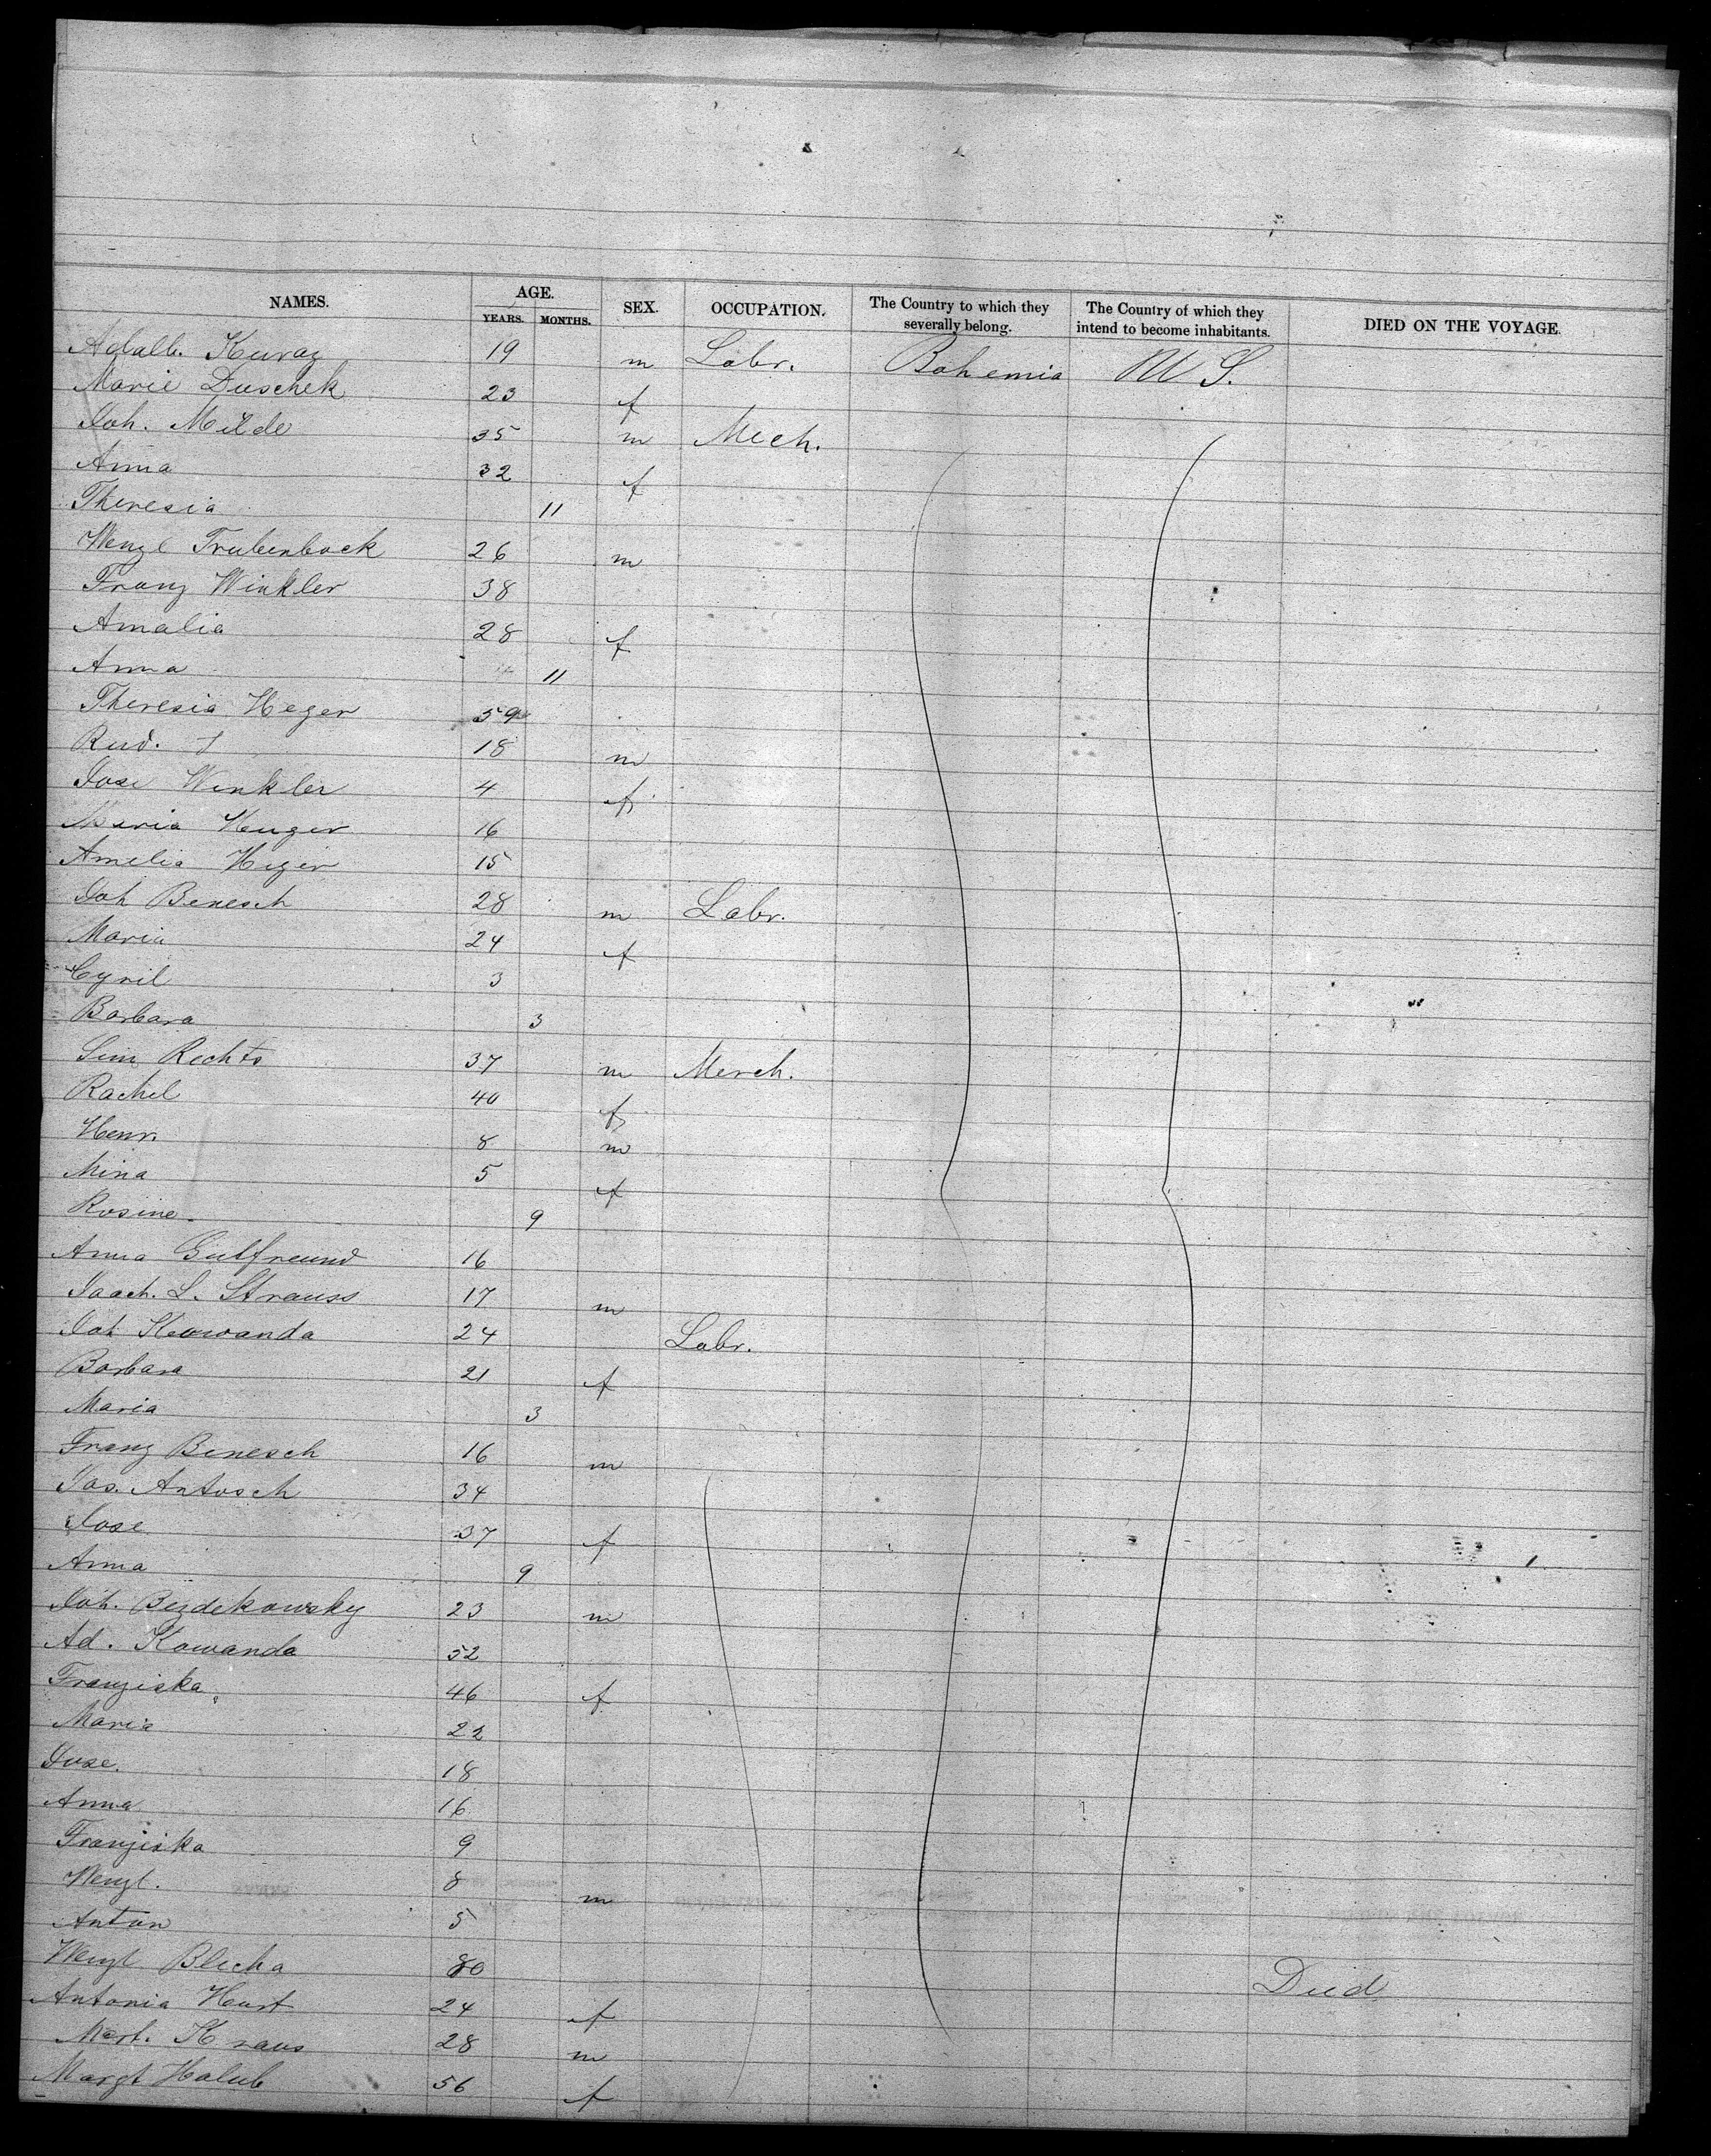 NAMES. AGE. SEX. OCCUPATION. The Country to which they severally belong. The Country of which they intend to become inhabitants. DIED ON THE VOYAGE.
YEARS. MONTHS.
Adalb. Kuraz 19 m Labr. Bohemia U S.
Marie Duschek 23 f
Joh. Milde 35 m Mech.
Anna 32 f
Theresia 11
Wenzl Trubenback 26 m
Franz Winkler 38
Amalia 28 f
Anna 11
Theresia Heger 59
Rud. 18 m
Jose Winkler 4 f
Maria Heuger 16
Amelia Heger 15
Joh Benesch 28 m Labr.
Maria 24 f
Cyril 3
Barbara 3
Sim Rechts 37 m Merch.
Rachel 40 f
Henr. 8 m
Mina 5 f
Rosine. 9
Anna Gutfreund 16
Isaach. L. Strauss 17 m
Joh Kowanda 24 Labr.
Barbara 21 f
Maria 3
Franz Benesch 16 m
Jos. Antosch 34
Jose 37 f
Anna 9
Joh. Bezdekowsky 23 m
Ad. Kowanda 52
Franziska 46 f
Maria 22
Jose. 18
Anna 16
Franziska 9
Wenzl. 8 m
Anton 5
Wenzl Blecha 80 Died
Antonia Hust 24 f
Mart. Kraus 28 m
Margt Holub 56 f